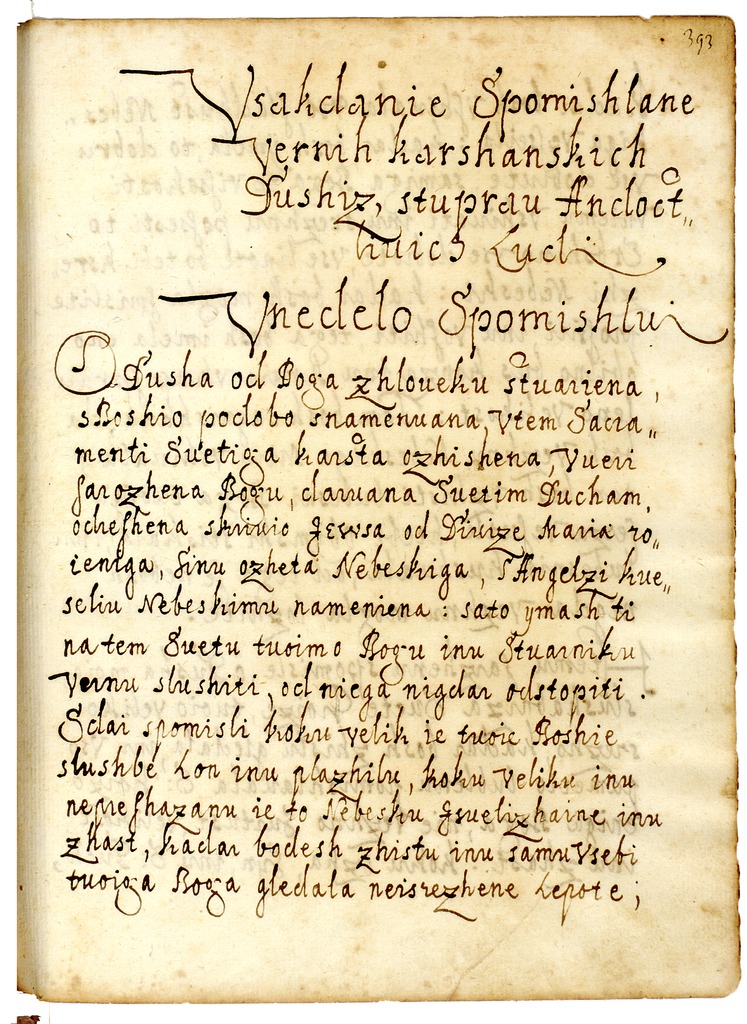 393
Vsakdanie Spomishlane
Vernih karshanskich
Dushiz, stuprau Andoct„
liuich Ludi
Vnedelo Spomishlui
O Dusha od Boga zhloueku stuariena,
sBoshio podobo snamenuana, Vtem Sacra„
menti Suetiga karsta ozhishena, Vueri
farozhena Bogu, daruana Suetim Ducham,
odreshena skriuio Jesusa od Diuize Maria ro„
ieniga, Sinu ozheta Nebeskiga, s'Angelzi kue„
seliu Nebeskimu nameniena: sato ymash ti
na tem Suetu tuoimo Bogu inu Stuarniku
Vernu slushiti, od niega nigdar odstopiti.
Sdai spomisli koku velik ie tuoie Boshie
slushbe Lon inu plazhilu, koku veliku inu
nepreshazanu ie to Nebesku Isuelizhaine inu
zhast, kadar bodesh zhistu inu samu Vsebi
tuoiga Boga gledala neisrezhene Lepote;